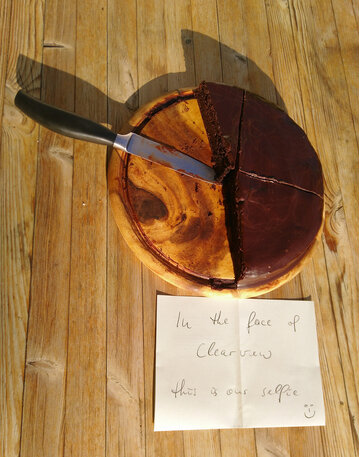 In the face of
Clearview
this is our selfie